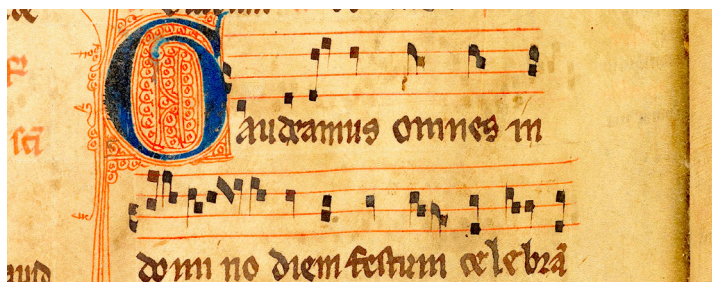 Gaudeamus omnes in
domino diem festum celebrā